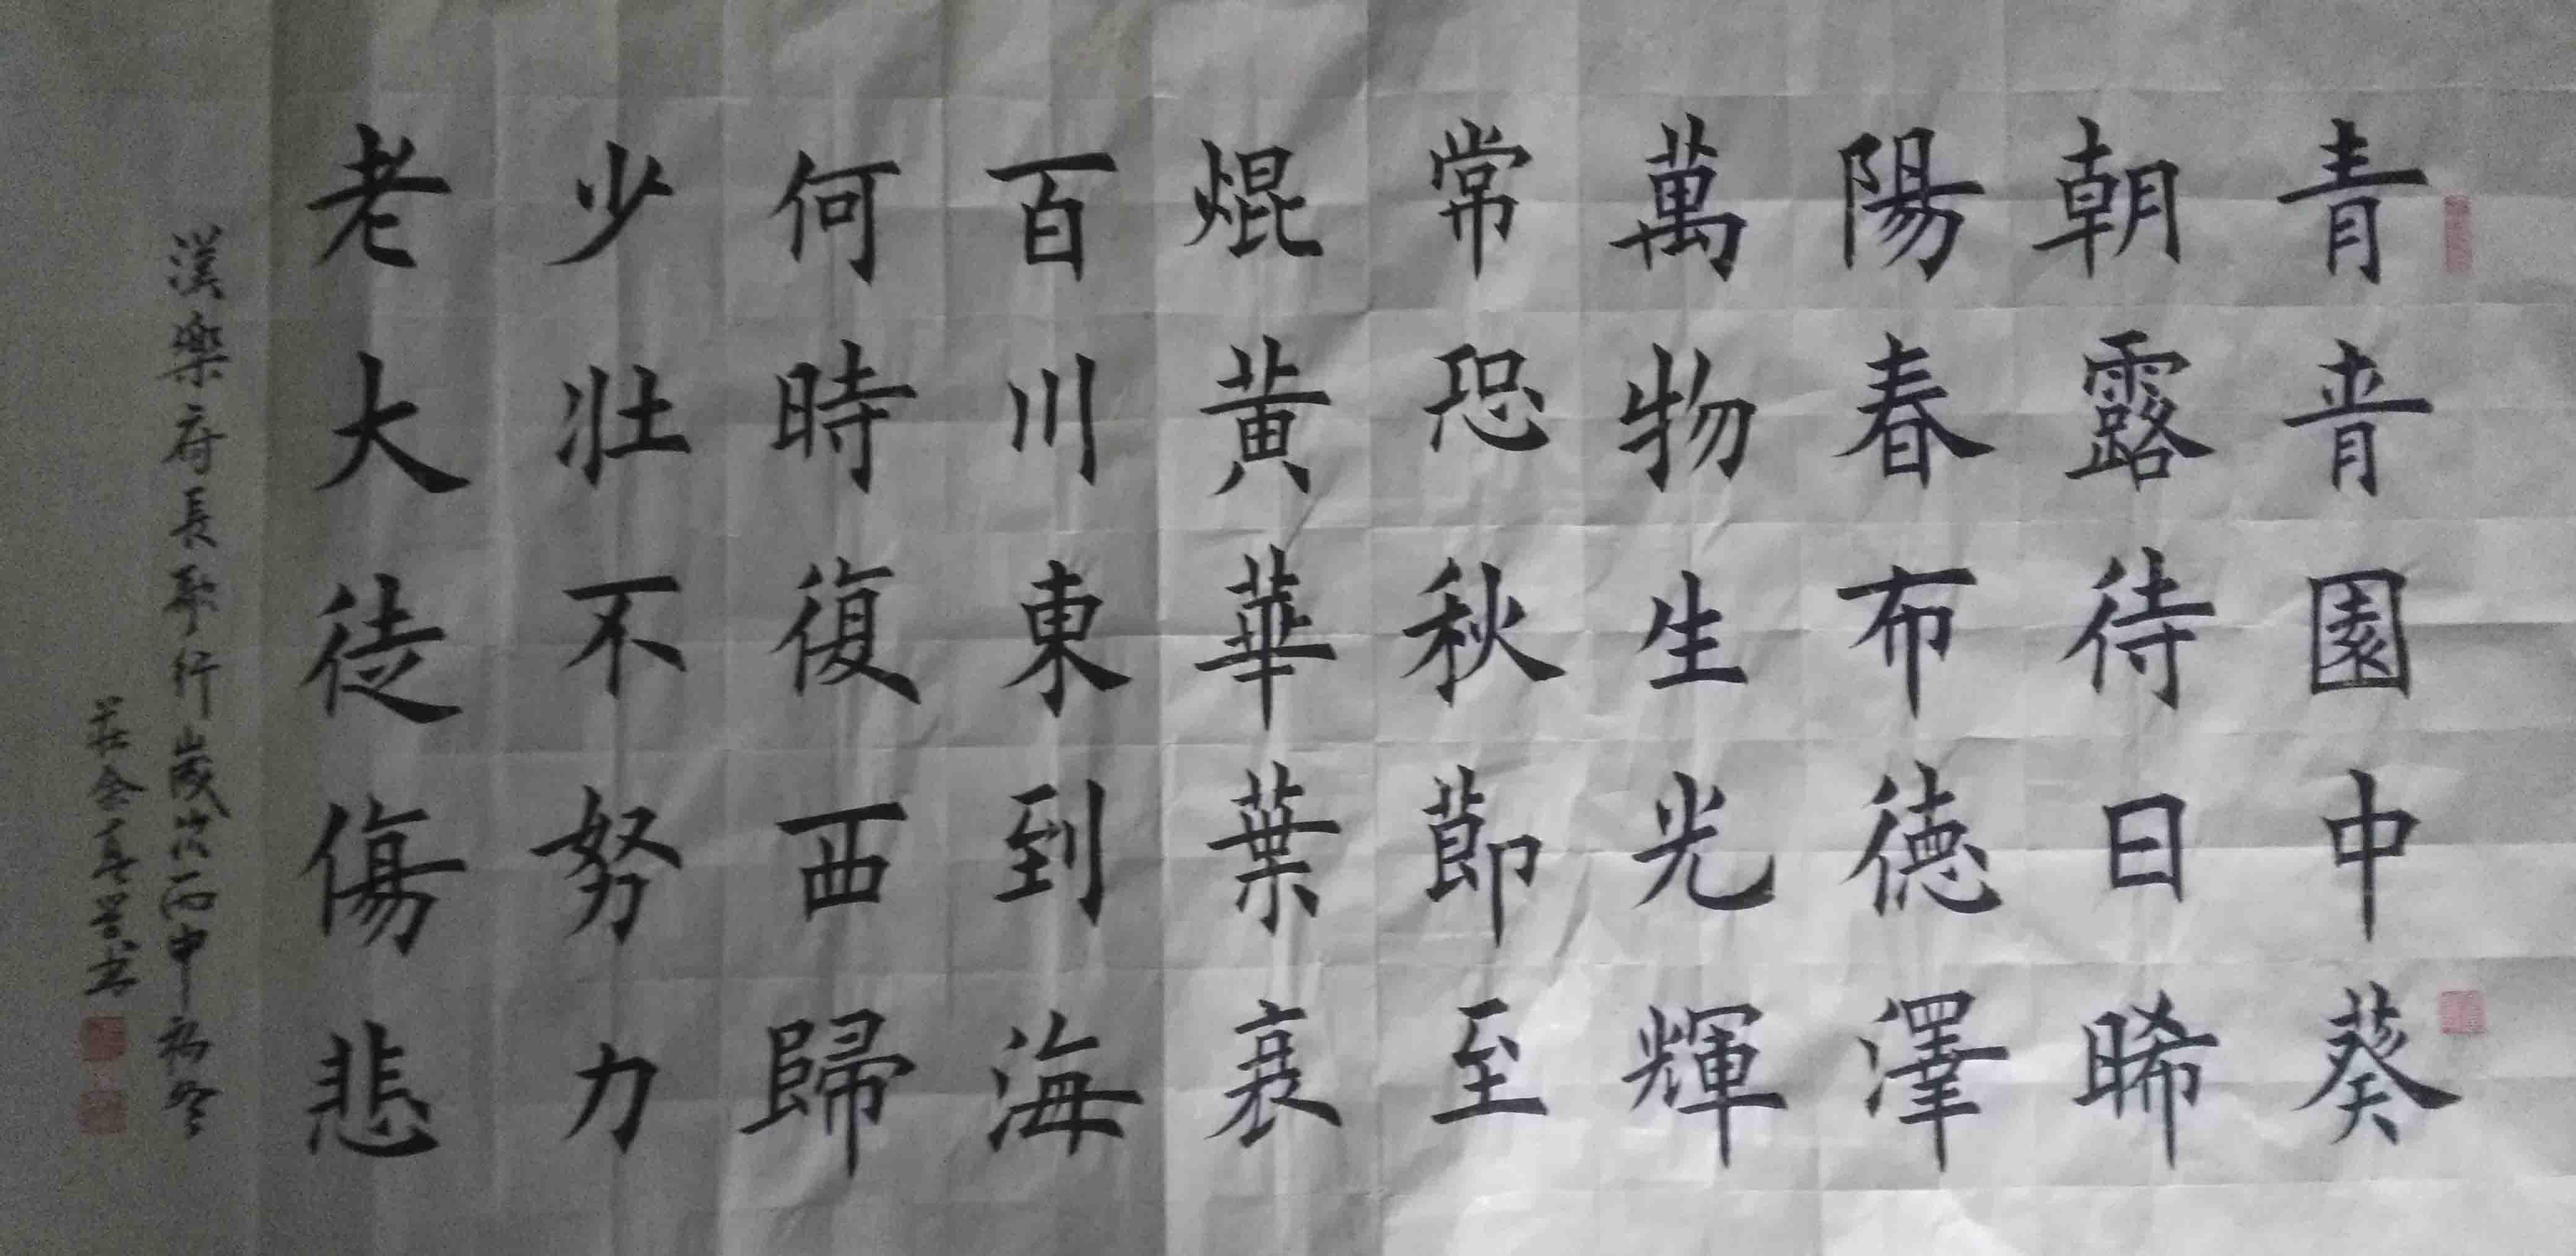 青青園中葵
朝露待日晞
陽春布德澤
萬物生光輝
常恐秋節至
焜黃華葉衰
百川東到海
何時復西歸
少壯不努力
老大徒傷悲
漢樂府長歌行歲次丙申初冬